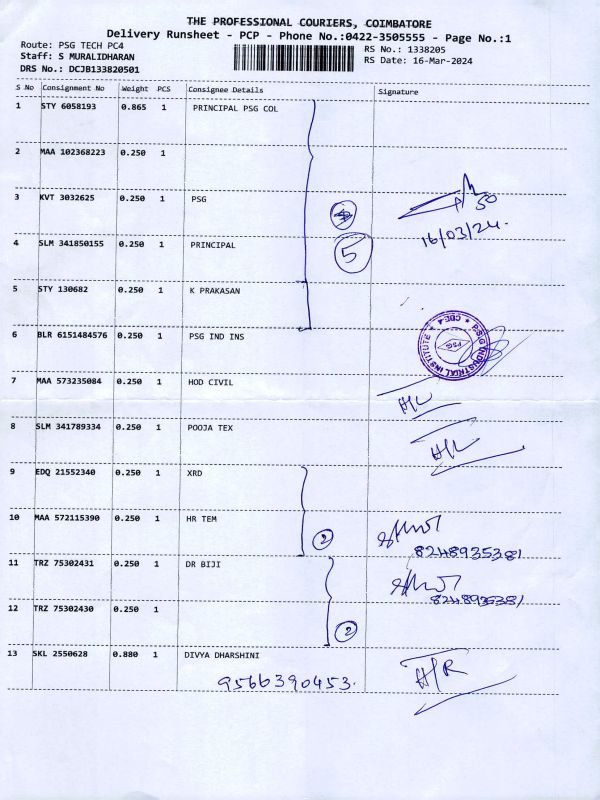 THE PROFESSIONAL COURIERS, COIMBATORE
Delivery Runsheet - PCP - Phone No.:0422-3505555 - Page No.:1
Route: PSG TECH PC4 RS No.: 1338205
Staff: S MURALIDHARAN RS Date: 16-Mar-2024
DRS No.: DCJB133820501
S No Consignment No Weight PCS Consignee Details Signature
1 STY 6058193 0.865 1 PRINCIPAL PSG COL
2 MAA 102368223 0.250 1
3 KVT 3032625 0.250 1 PSG
16/03/24.
4 SLM 341850155 0.250 1 PRINCIPAL
5
5 STY 130682 0.250 1 K PRAKASAN
6 BLR 6151484576 0.250 1 PSG IND INS
P.S.G INDUSTRIAL INSTITUTE ★ CBE.4 ★
PSG
7 MAA 573235084 0.250 1 HOD CIVIL
8 SLM 341789334 0.250 1 POOJA TEX
9 EDQ 21552340 0.250 1 XRD
10 MAA 572115390 0.250 1 HR TEM
2
8248935381
11 TRZ 75302431 0.250 1 DR BIJI
8248935381
12 TRZ 75302430 0.250 1
2
13 SKL 2550628 0.880 1 DIVYA DHARSHINI
9566390453. A/R